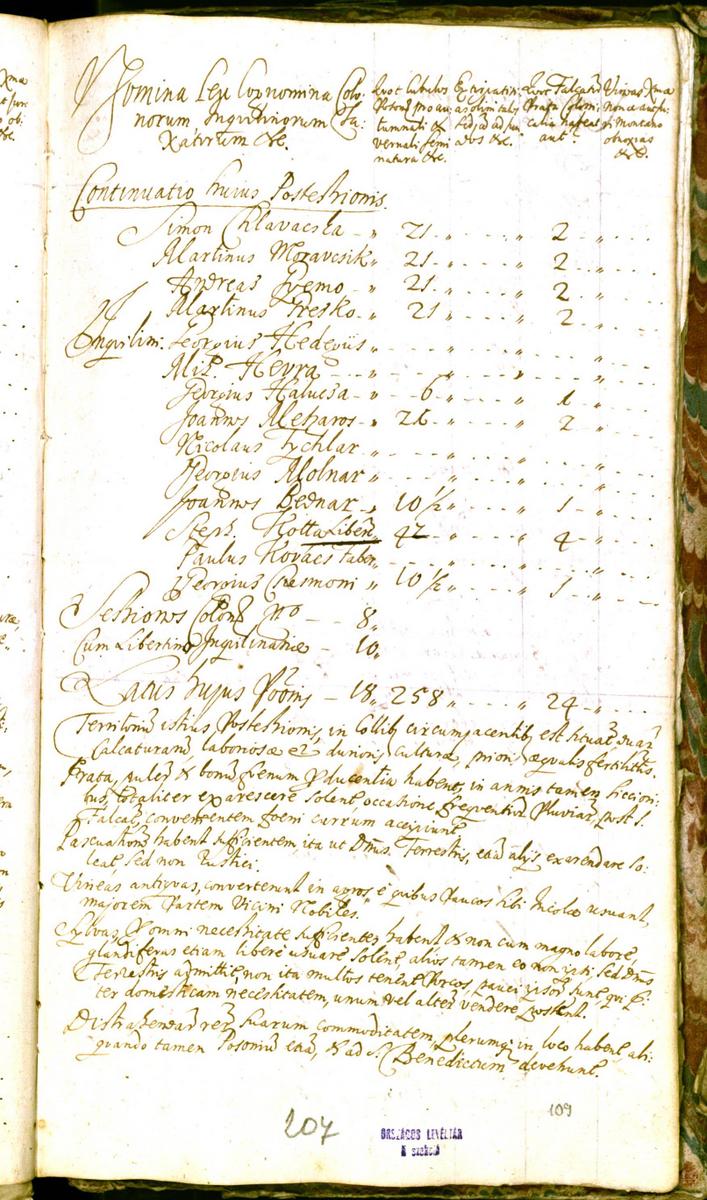 Nomina Seu Cognomina Colo- Quot Cubulos Extirpatitios Quot Falcand Vineas Xmæ
norum Inquilinorum & Ta- Poson pro au- as olim tales Prata Colon: Nonæ aut fu-
xatorum &c. tumnali & sed jam ad calia habeat gi Montano
vernali semi- &c. aut. obnoxias
natura &c. &c.
Continuatio hujus Possessionis.
Simon Chlavacska " 21 " " 2 "
Martinus Moravcsik " 21 " " 2 "
Andreas Gremo " 21 " " 2 "
Martinus Fresko " 21 " " 2 "
Inquilini. Georgius Hedeviis " " " "
Mich. Hevra " " "
Georgius Halucsa " 6 " " 1 "
Joannes Meszaros " 21 " " 2 "
Nicolaus Tychlar " " " "
Georgius Molnar " " " "
Joannes Bednar " 10 1/2 " " 1 "
Steph. Kotta Libert " 42 " " 4 "
Paulus Kovacs Faber " " "
Georgius Chasmoni " 10 1/2 " " 1 "
Sessiones Colon No — 8 "
Cum Libertino Inquilinatus — 10 "
Latus hujus Possnis — 18 " 258 " " 24 "
Territoriu istius Possessionis, in Collib circumjacentib est situat
Calcaturam laboriosæ et durioris culturæ, priori æqualis fertilitis.
Prata, pulcr & bonu fœnum producentia habent, in annis tamen sicciori-
bus, totaliter exarescere solent, occasione frequentiu Pluviar, post 1.
Falcat convenientem fœni currum accipiunt.
Pascuationem habent sufficientem, ita ut Dnus Terrestris, etiam alijs exarendare so-
leat, sed non Rustici.
Vineas antiquas, converterunt in agros e quibus Paucos sibi Incolæ usuant,
majorem Partem Vicini Nobiles.
Sylvas Pommi necessitate sufficientes habent & non cum magno labore,
glandiferas etiam libere usuare solent, alios tamen eo non ipsi, sed Dnus
Terrestris admittit, non ita multos tenent Porcos, pauci ipsor sunt, qui p
ter domesticam necessitatem, unum vel alter vendere possent.
Distrahendar rer suarum commoditatem, plerumq in loco habent, ali-
quando tamen Posonium etiam, & ad S. Benedictum devehunt.
207
109
ORSZÁGOS LEVÉLTÁR
A szekció